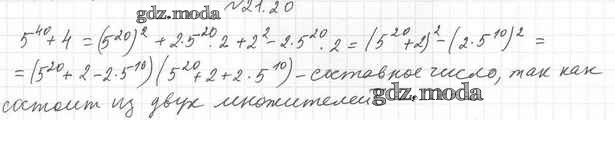 №21.20
gdz.moda
5⁴⁰+4 = (5²⁰)² + 2·5²⁰·2 + 2² - 2·5²⁰·2 = (5²⁰+2)² - (2·5¹⁰)² =
= (5²⁰ + 2 - 2·5¹⁰)(5²⁰ + 2 + 2·5¹⁰) - составное число, так как
состоит из двух множителей
gdz.moda